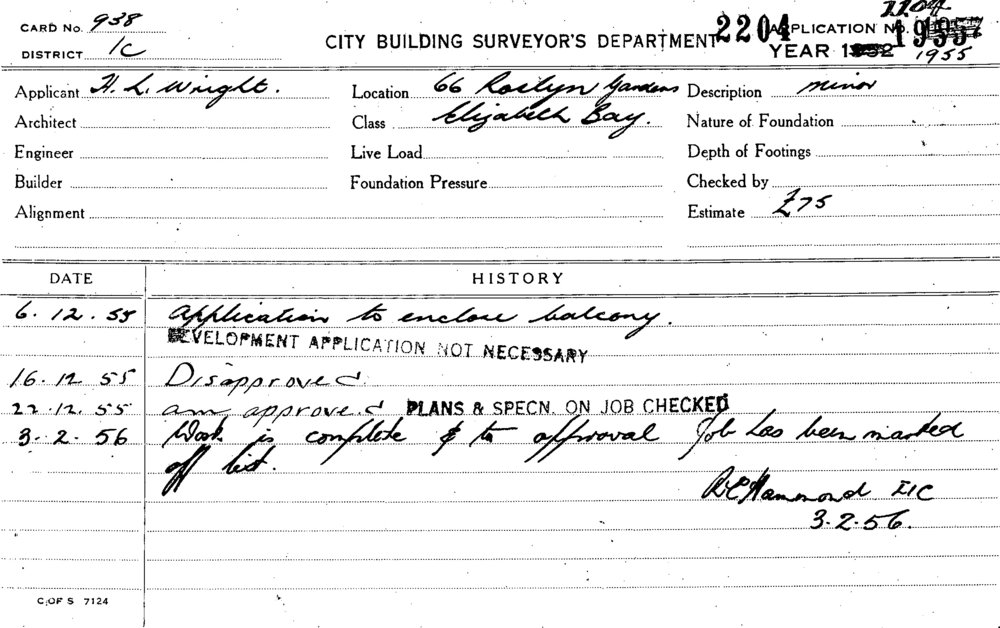 CARD No. 938
DISTRICT 1C
CITY BUILDING SURVEYOR'S DEPARTMENT
2204
APPLICATION No.
2204
YEAR 1952
1955
1955
Applicant H. L. Wright.
Location 66 Roslyn Gardens
Description minor
Architect
Class Elizabeth Bay.
Nature of Foundation
Engineer
Live Load
Depth of Footings
Builder
Foundation Pressure
Checked by
Alignment
Estimate £75
DATE HISTORY
6.12.55 Application to enclose balcony.
DEVELOPMENT APPLICATION NOT NECESSARY
16.12 55 Disapproved
22.12.55 am approved PLANS & SPECN. ON JOB CHECKED
3.2.56 Work is complete & to approval Job has been marked
off list.
Hammond
3.2.56.
C. OF S 7124